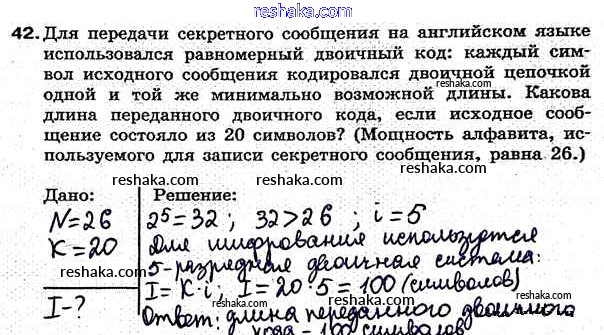 reshak.ru
42. Для передачи секретного сообщения на английском языке
использовался равномерный двоичный код: каждый сим-
вол исходного сообщения кодировался двоичной цепочкой
одной и той же минимально возможной длины. Какова
длина переданного двоичного кода, если исходное сооб-
щение состояло из 20 символов? (Мощность алфавита, ис-
пользуемого для записи секретного сообщения, равна 26.)
Дано: Решение:
N=26 2⁵=32; 32>26; i=5
K=20 Для шифрования используется
5-разрядная двоичная система:
I=K·i; I=20·5=100 (символов)
I-? Ответ: длина переданного двоичного
кода - 100 символов